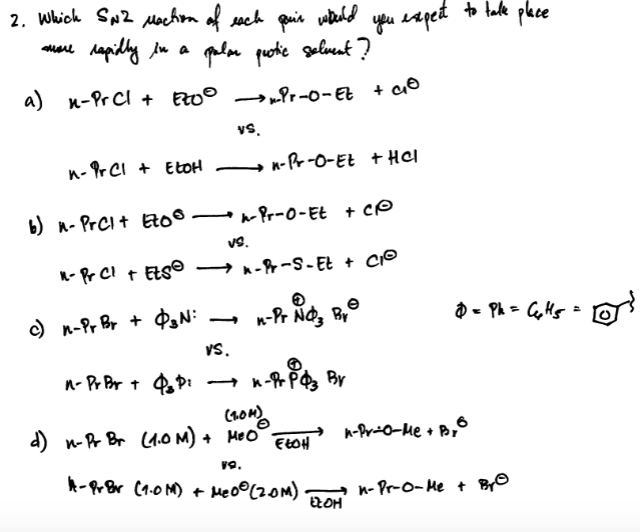 2. Which SN2 reaction of each pair would you expect to take place
more rapidly in a polar protic solvent?
a) n-PrCl + EtO⊖ → n-Pr-O-Et + Cl⊖
vs.
n-PrCl + EtOH → n-Pr-O-Et + HCl
b) n-PrCl + EtO⊖ → n-Pr-O-Et + Cl⊖
vs.
n-PrCl + EtS⊖ → n-Pr-S-Et + Cl⊖
c) n-PrBr + Φ₃N: → n-Pr N⊕Φ₃ Br⊖
Φ = Ph = C₆H₅ =
vs.
n-PrBr + Φ₃P: → n-Pr P⊕Φ₃ Br
d) n-PrBr (1.0M) + MeO⊖ (1.0M) → EtOH n-Pr-O-Me + Br⊖
vs.
n-PrBr (1.0M) + MeO⊖ (2.0M) → EtOH n-Pr-O-Me + Br⊖